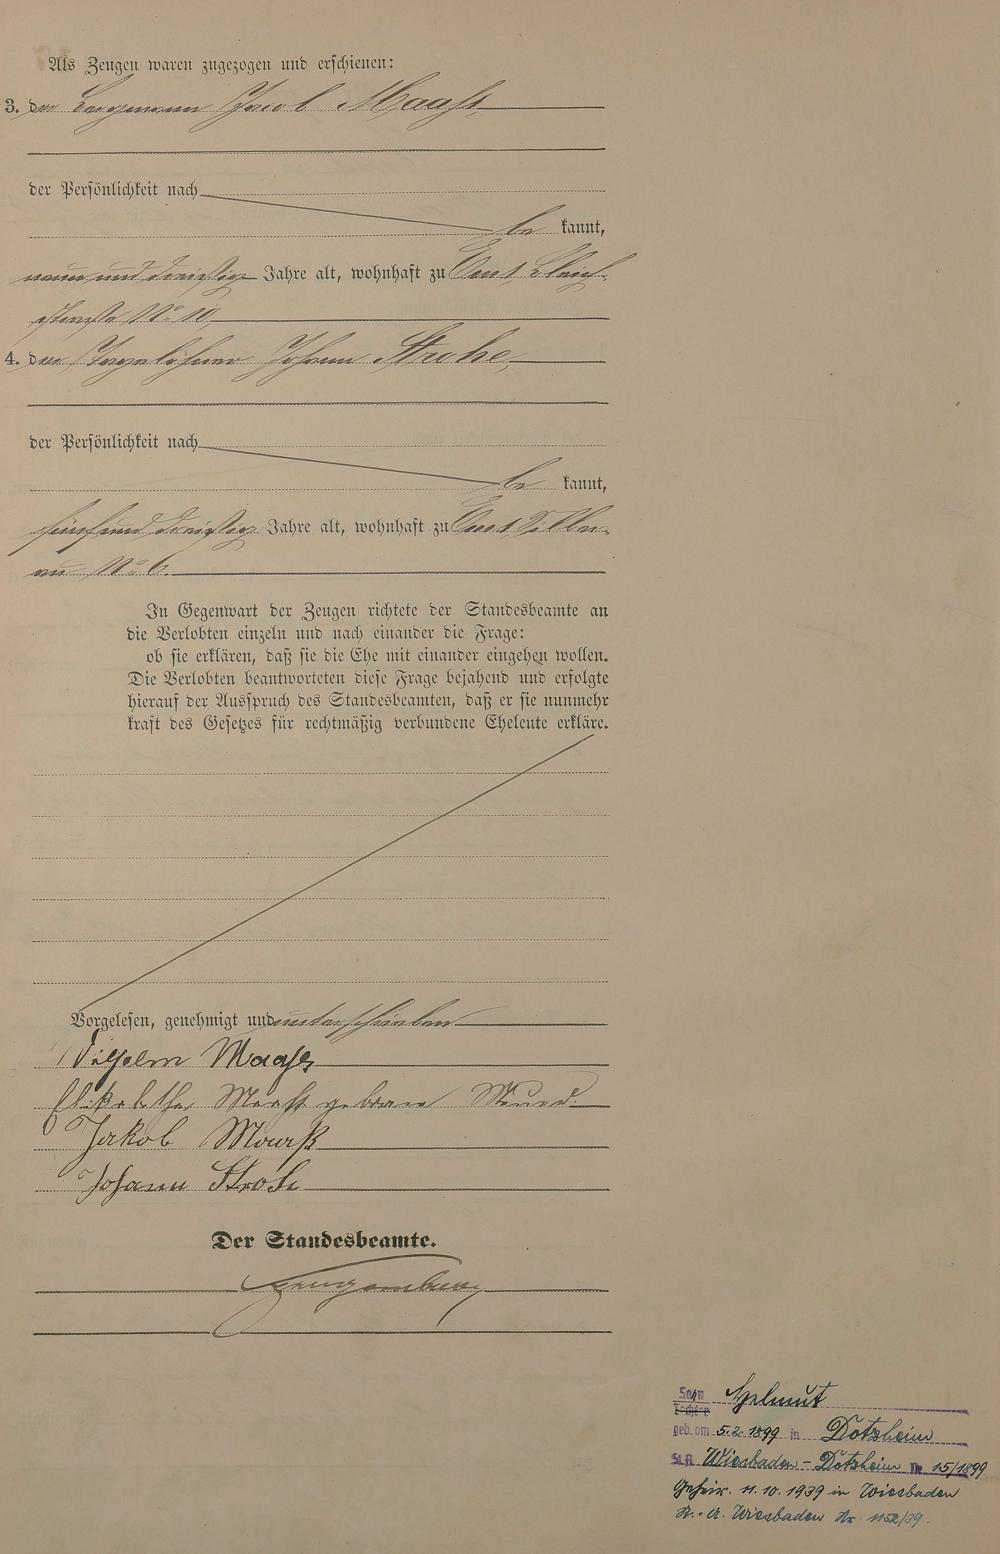 Als Zeugen waren zugezogen und erschienen:
3. der Bergmann Jacob Maaß
der Persönlichkeit nach
be kannt,
neun und dreißig Jahre alt, wohnhaft zu Ems, Bleich-
straße No 10,
4. der Tagelöhner Johann Strohe,
der Persönlichkeit nach
be kannt,
fünf und dreißig Jahre alt, wohnhaft zu Ems, Silber-
au No 6.
In Gegenwart der Zeugen richtete der Standesbeamte an
die Verlobten einzeln und nach einander die Frage:
ob sie erklären, daß sie die Ehe mit einander eingehen wollen.
Die Verlobten beantworteten diese Frage bejahend und erfolgte
hierauf der Ausspruch des Standesbeamten, daß er sie nunmehr
kraft des Gesetzes für rechtmäßig verbundene Eheleute erkläre.
Vorgelesen, genehmigt und unterschrieben
Wilhelm Maaß
Elisabetha Maaß geborene
Jakob Maaß
Johann Strohe
Der Standesbeamte.
Sohn Helmut
Tochter
geb. am 5.2.1899 in Dotzheim
St.A. Wiesbaden-Dotzheim Nr. 15/1899
Geheir. 11.10.1939 in Wiesbaden
St.A. Wiesbaden Nr. 1152/39.